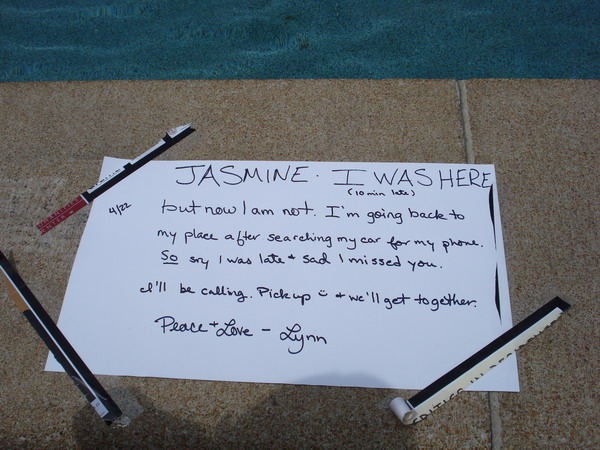 JASMINE. I WAS HERE
(10 min late)
4/22
but now I am not. I'm going back to
my place after searching my car for my phone.
So sry I was late + sad I missed you.
I'll be calling. Pick up ☺ + we'll get together.
Peace + Love - Lynn